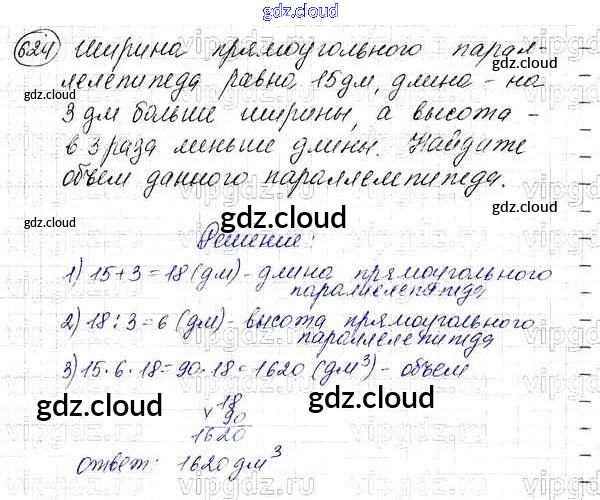 gdz.cloud
gdz.cloud gdz.cloud
624 Ширина прямоугольного парал-
лелепипеда равна 15 дм, длина - на
gdz.cloud gdz.cloud
3 дм больше ширины, а высота -
в 3 раза меньше длины. Найдите
объем данного параллелепипеда.
gdz.cloud gdz.cloud
gdz.cloud gdz.cloud
Решение:
1) 15+3=18 (дм) - длина прямоугольного
параллелепипеда
2) 18:3=6 (дм) - высота прямоугольного
параллелепипеда
3) 15·6·18=90·18=1620 (дм³) - объем
gdz.cloud gdz.cloud
18
× 90
1620
ответ: 1620 дм³
gdz.cloud